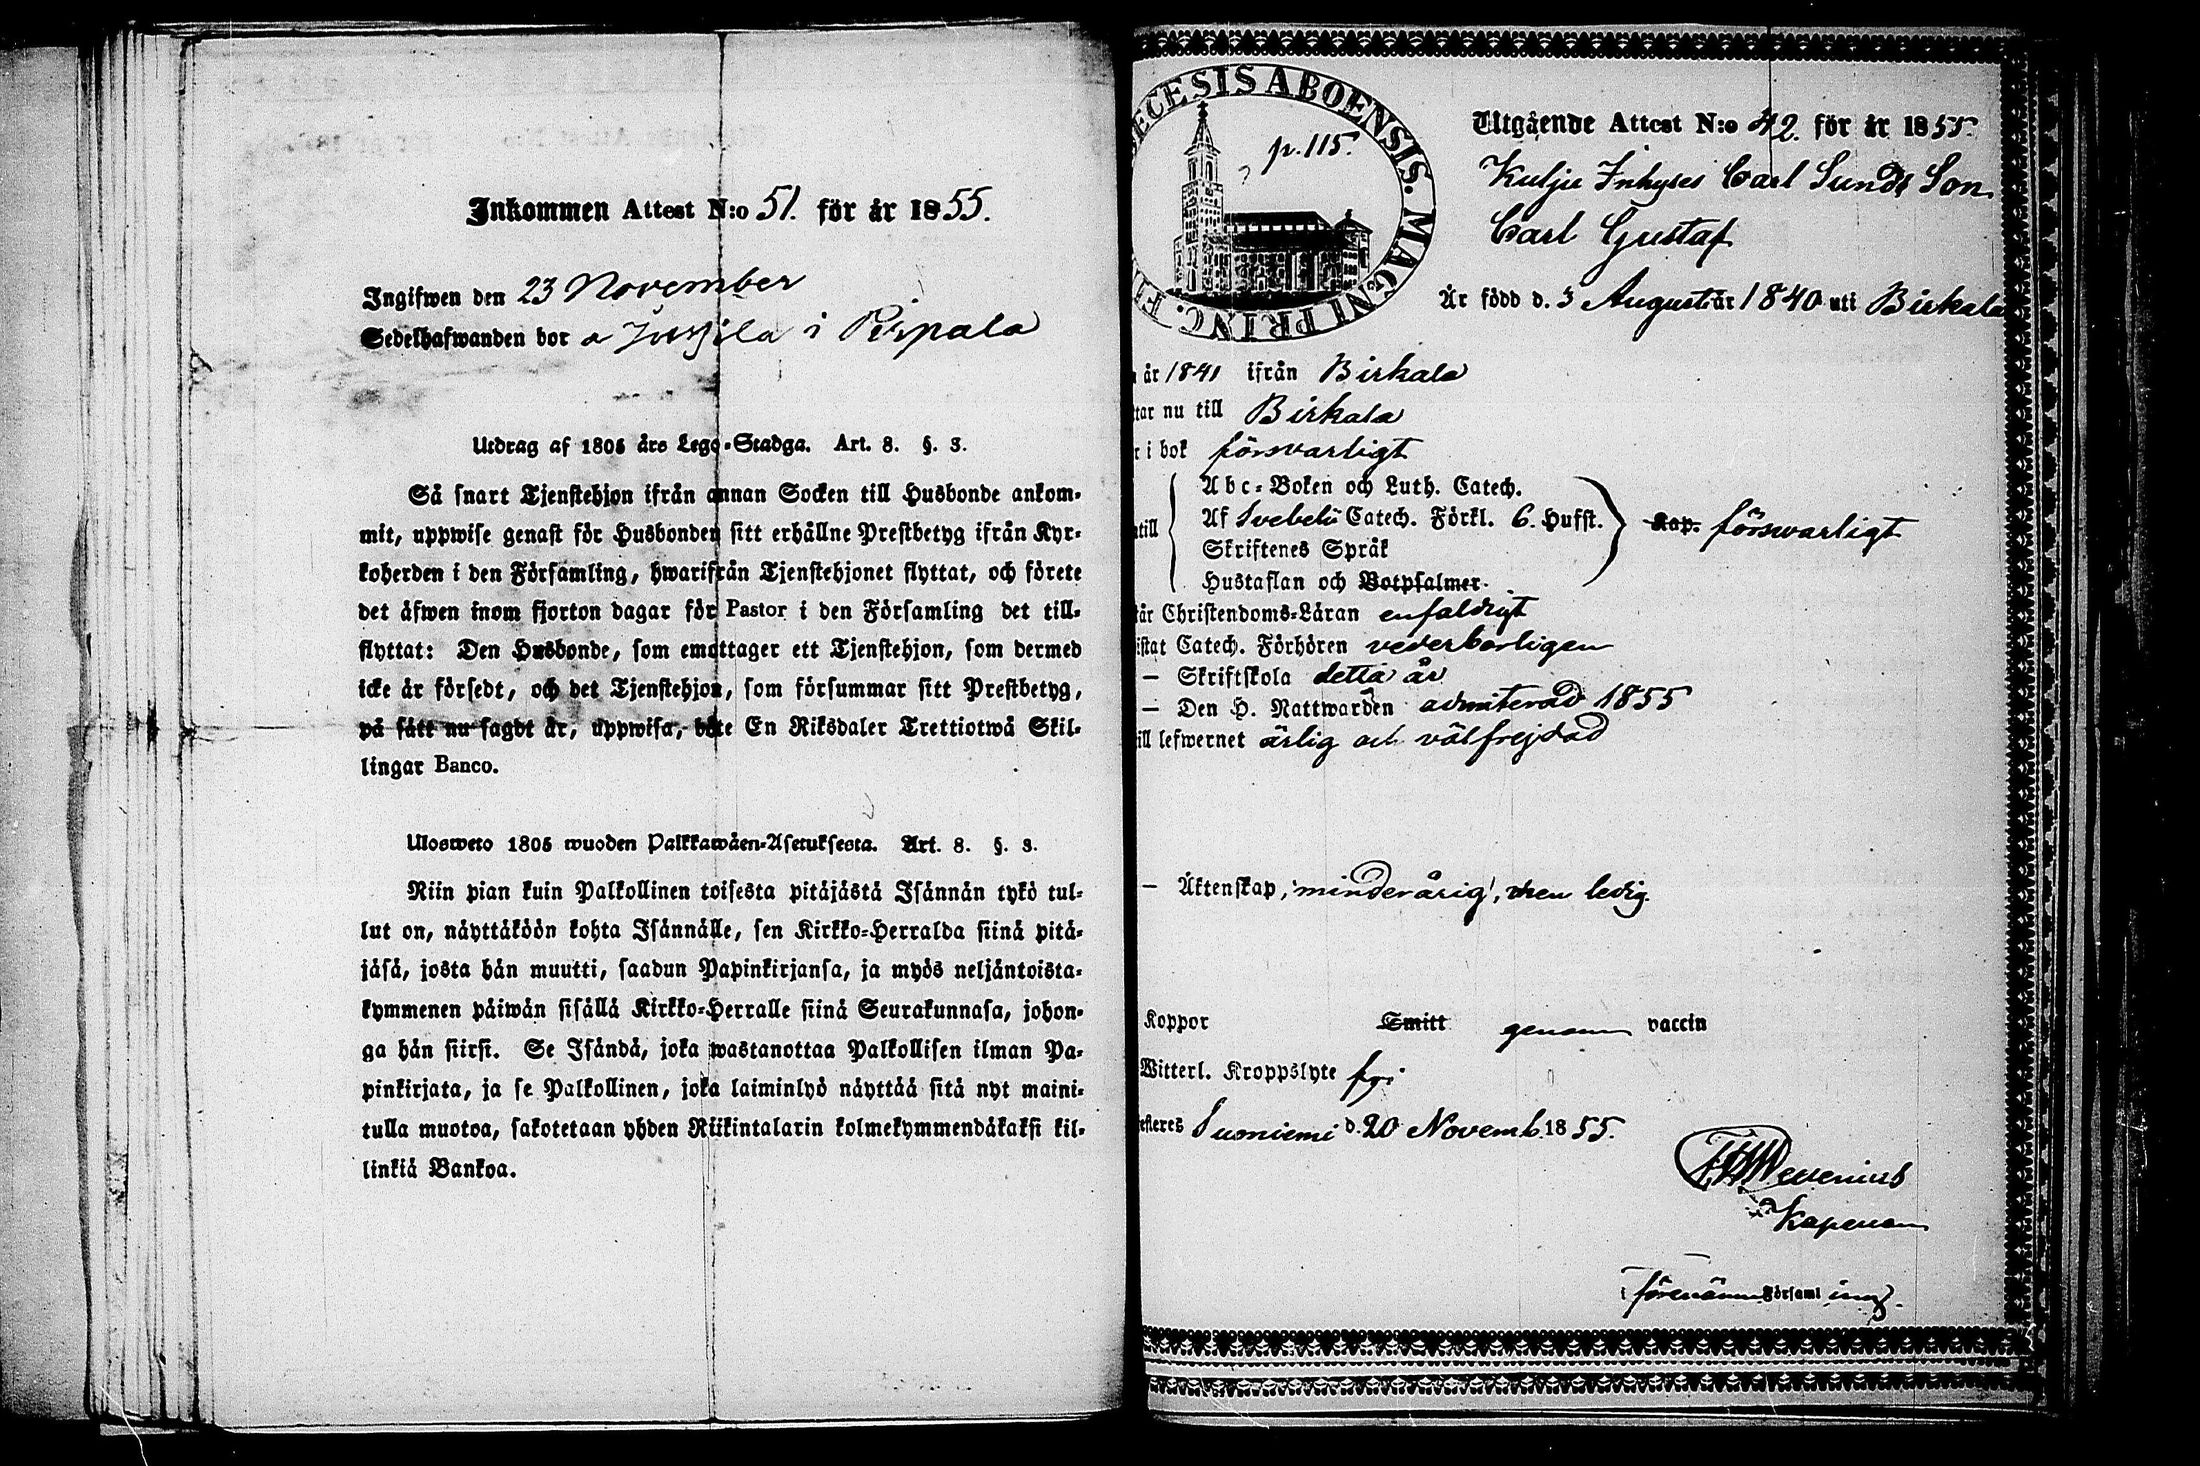 Inkommen Attest N:o 51. för år 1855.
Ingifwen den 23 November
Sedelhafwanden bor a i Pispala
Utdrag af 1805 års Lego-Stadga. Art. 8. §. 3.
Så snart Tjenstehjon ifrån annan Socken till Husbonde ankom-
mit, uppwise genast för Husbonden sitt erhållne Prestbetyg ifrån Kyr-
koherden i den Församling, hwarifrån Tjenstehjonet flyttat, och förete
det äfwen inom fjorton dagar för Pastor i den Församling det till-
flyttat: Den Husbonde, som emottager ett Tjenstehjon, som dermed
icke är försedt, och det Tjenstehjon, som försummar sitt Prestbetyg,
på sätt nu sagdt är, uppwisa, böte En Riksdaler Trettiotwå Skil-
lingar Banco.
Ulosweto 1805 wuoden Palkkawäen-Asetuksesta. Art. 8. §. 3.
Niin pian kuin Palkollinen toisesta pitäjästä Isännän tykö tul-
lut on, näyttäköön kohta Isännälle, sen Kirkko-Herralda siinä pitä-
jäsä, josta hän muutti, saadun Papinkirjansa, ja myös neljäntoista-
kymmenen päiwän sisällä Kirkko-Herralle siinä Seurakunnasa, johon-
ga hän siirsi. Se Isändä, joka wastanottaa Palkollisen ilman Pa-
pinkirjata, ja se Palkollinen, joka laiminlyö näyttää sitä nyt maini-
tulla muotoa, sakotetaan yhden Riikintalarin kolmekymmendäkaksi kil-
linkiä Bankoa.
ECESIS ABOENSIS. MAGNI PRINC. FI
p. 115.
Utgående Attest N:o 42. för år 1855.
Kulju Inhyses Carl Sunds Son
Carl Gustaf
Är född d. 3 Augusti år 1840 uti Birkala
år 1841 ifrån Birkala
tar nu till Birkala
r i bok försvarligt
Abc-Boken och Luth. Catech.
ntill Af Svebelii Catech. Förkl. 6. Hufst. Kap. försvarligt
Skriftenes Språk
Hustaflan och Botpsalmer.
tår Christendoms-Läran enfaldigt
istat Catech. Förhören vederborligen
— Skriftskola detta år
— Den H. Nattwarden admitterad 1855
ill lefwernet ärlig och välfrejdad
— Äktenskap, minderårig, men ledig.
Koppor Smitt genom vaccin
Witterl. Kroppslyte fri
esteres Suoniemi d. 20 Novemb. 1855.
Kapellan
i förenämn Församl ing.